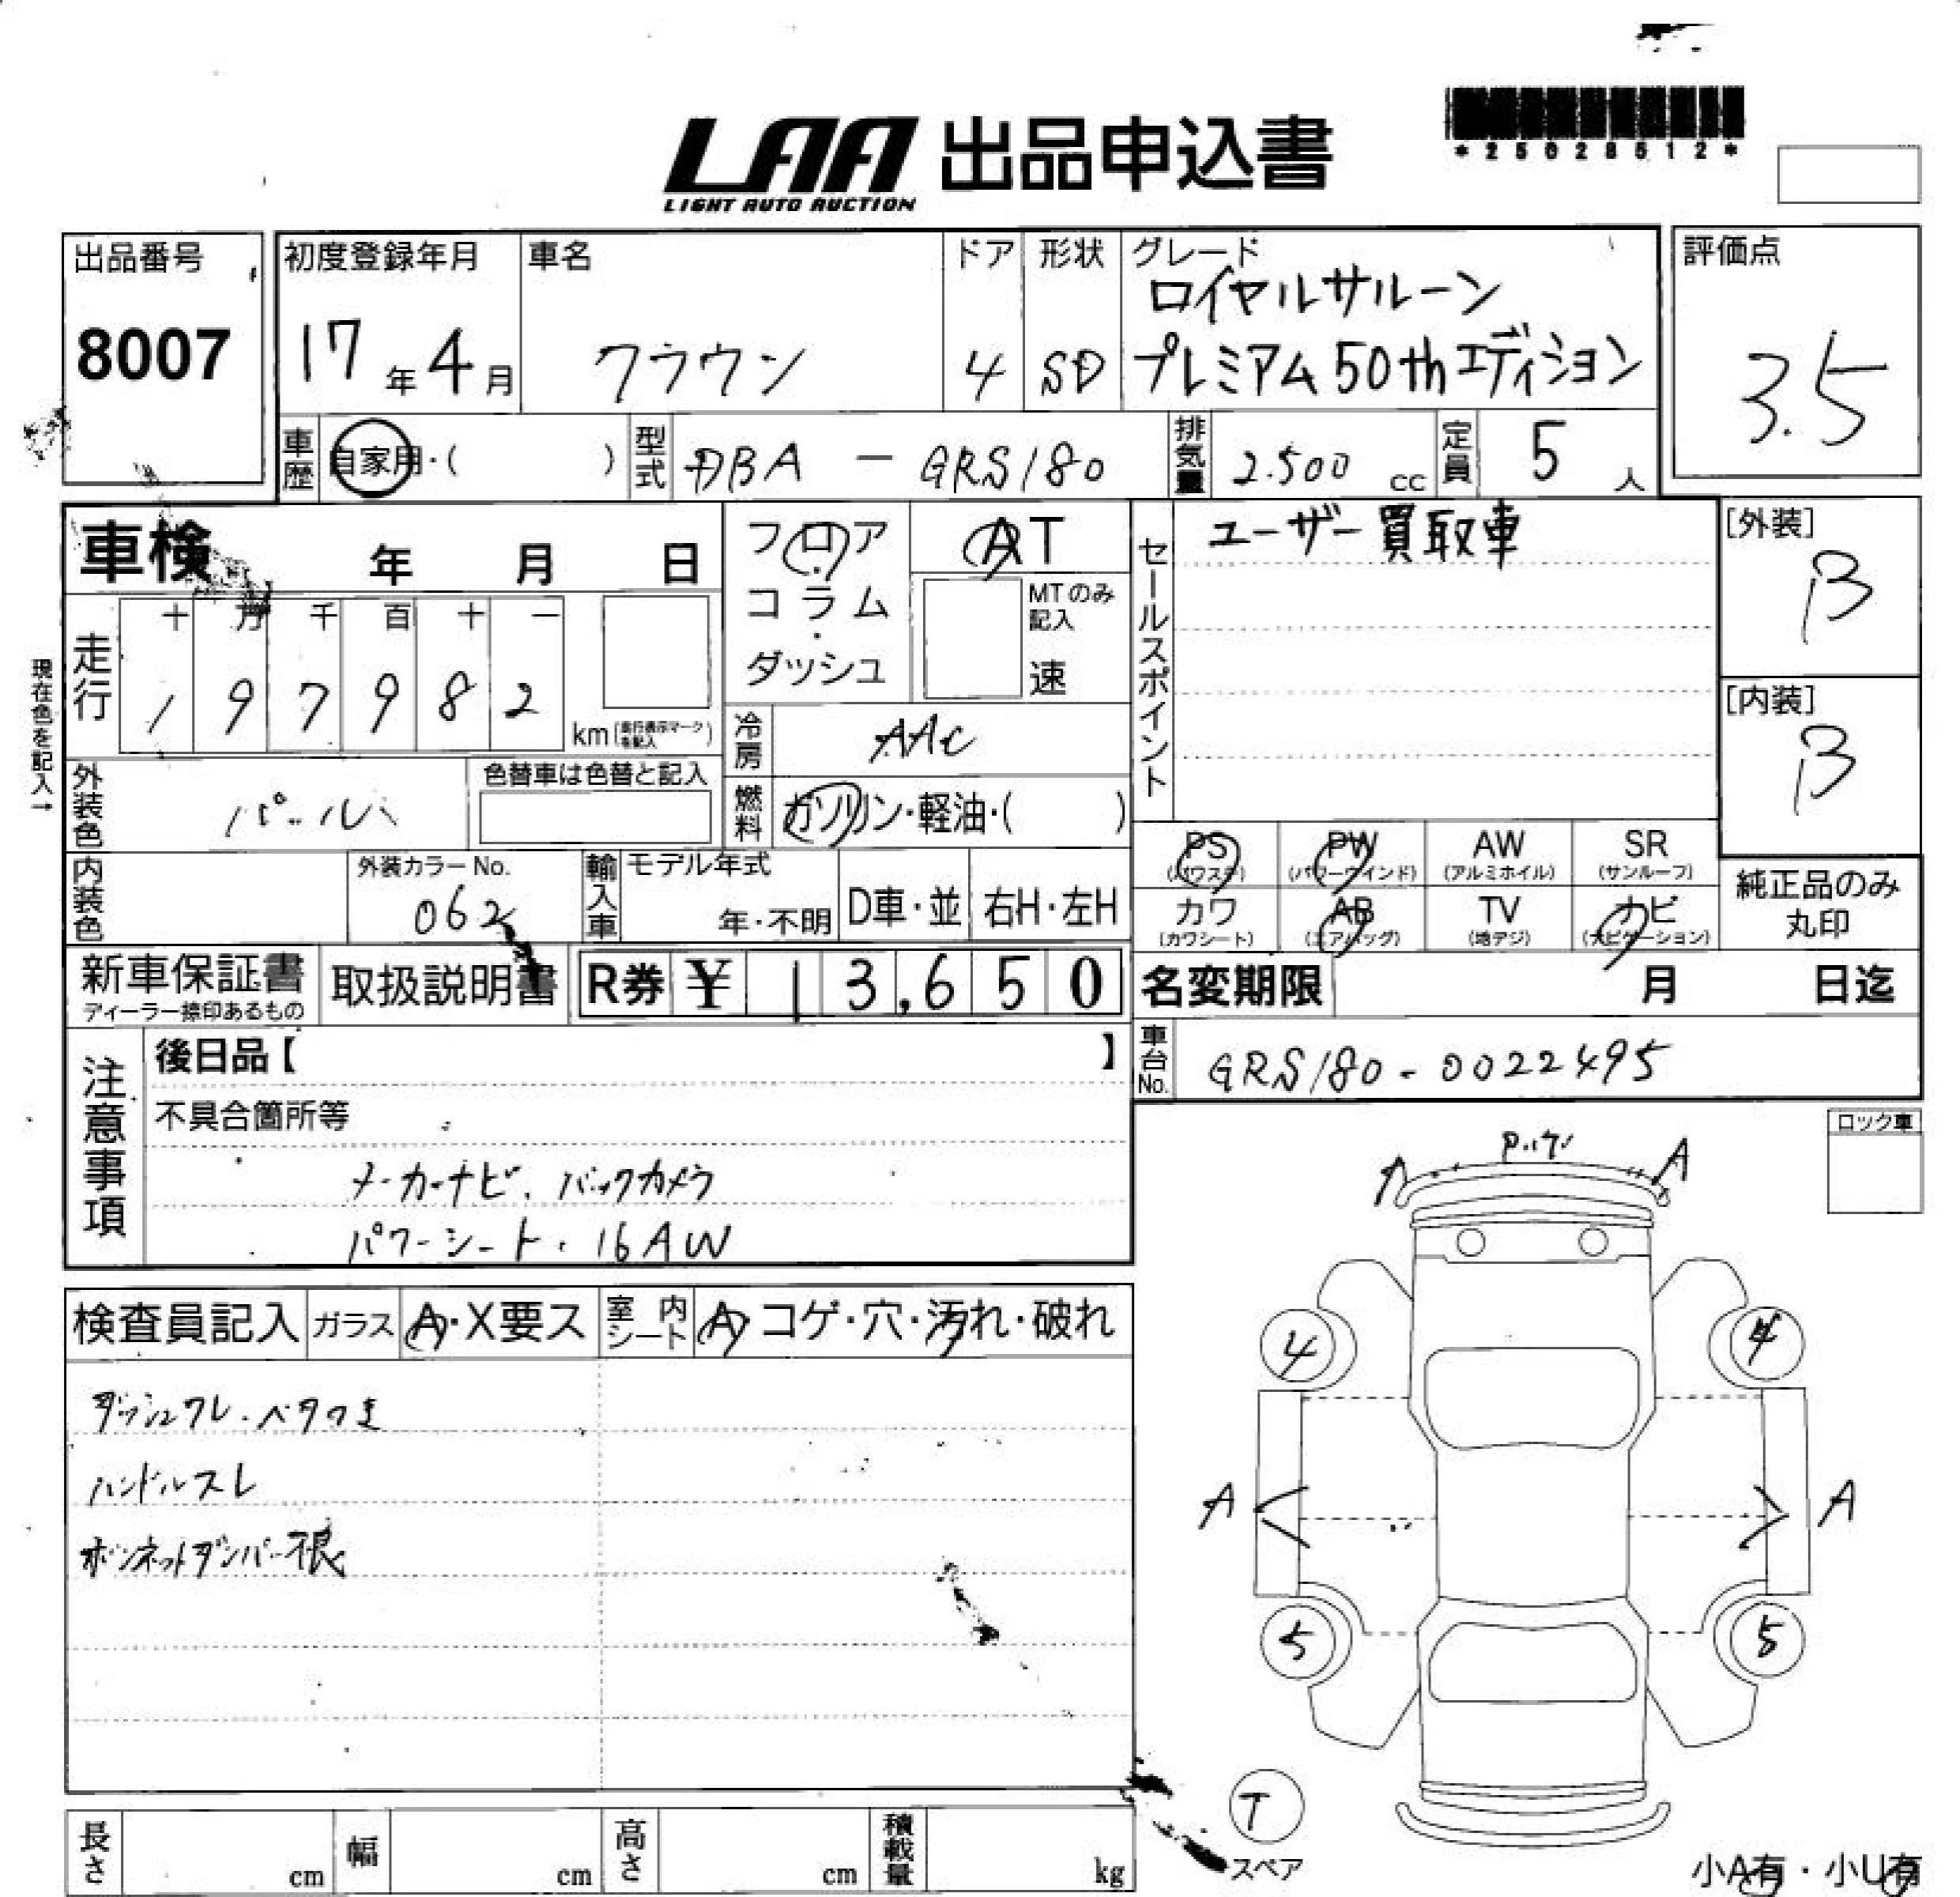 *25028512*
LAA 出品申込書
LIGHT AUTO AUCTION
出品番号
8007
初度登録年月
17年4月
車名
クラウン
ドア
4
形状
SD
グレード
ロイヤルサルーン
プレミアム50thエディション
評価点
3.5
車歴
自家用・( )
型式
DBA - GRS180
排気量
2.500 cc
定員
5人
車検 年 月 日
フロア
コラム
・
ダッシュ
AT
MTのみ
記入
速
セールスポイント
ユーザー買取車
[外装]
B
[内装]
B
現在色を記入→
走行
十 万 千 百 十 一
1 9 7 9 8 2
km(走行表示マークを記入)
冷房
AAC
燃料
ガソリン・軽油・( )
外装色
パール
色替車は色替と記入
内装色
外装カラーNo.
062
輸入車
モデル年式
年・不明
D車・並
右H・左H
PS
(パワステ)
PW
(パワーウインド)
AW
(アルミホイル)
SR
(サンルーフ)
カワ
(カワシート)
AB
(エアバッグ)
TV
(地デジ)
ナビ
(ナビゲーション)
純正品のみ
丸印
新車保証書
ディーラー捺印あるもの
取扱説明書
R券 ¥ 13,650
名変期限 月 日迄
車台No.
GRS180-0022495
注意事項
後日品【 】
不具合箇所等
メーカーナビ、バックカメラ
パワーシート、16AW
ロック車
A
A
検査員記入
ガラス
A・X要ス
室内シート
A・コゲ・穴・汚れ・破れ
ダッシュワレ・ベタつき
ハンドルスレ
ボンネットダンパー不良
4
4
A
A
5
5
T
スペア
長さ cm
幅 cm
高さ cm
積載量 kg
小A有・小U有